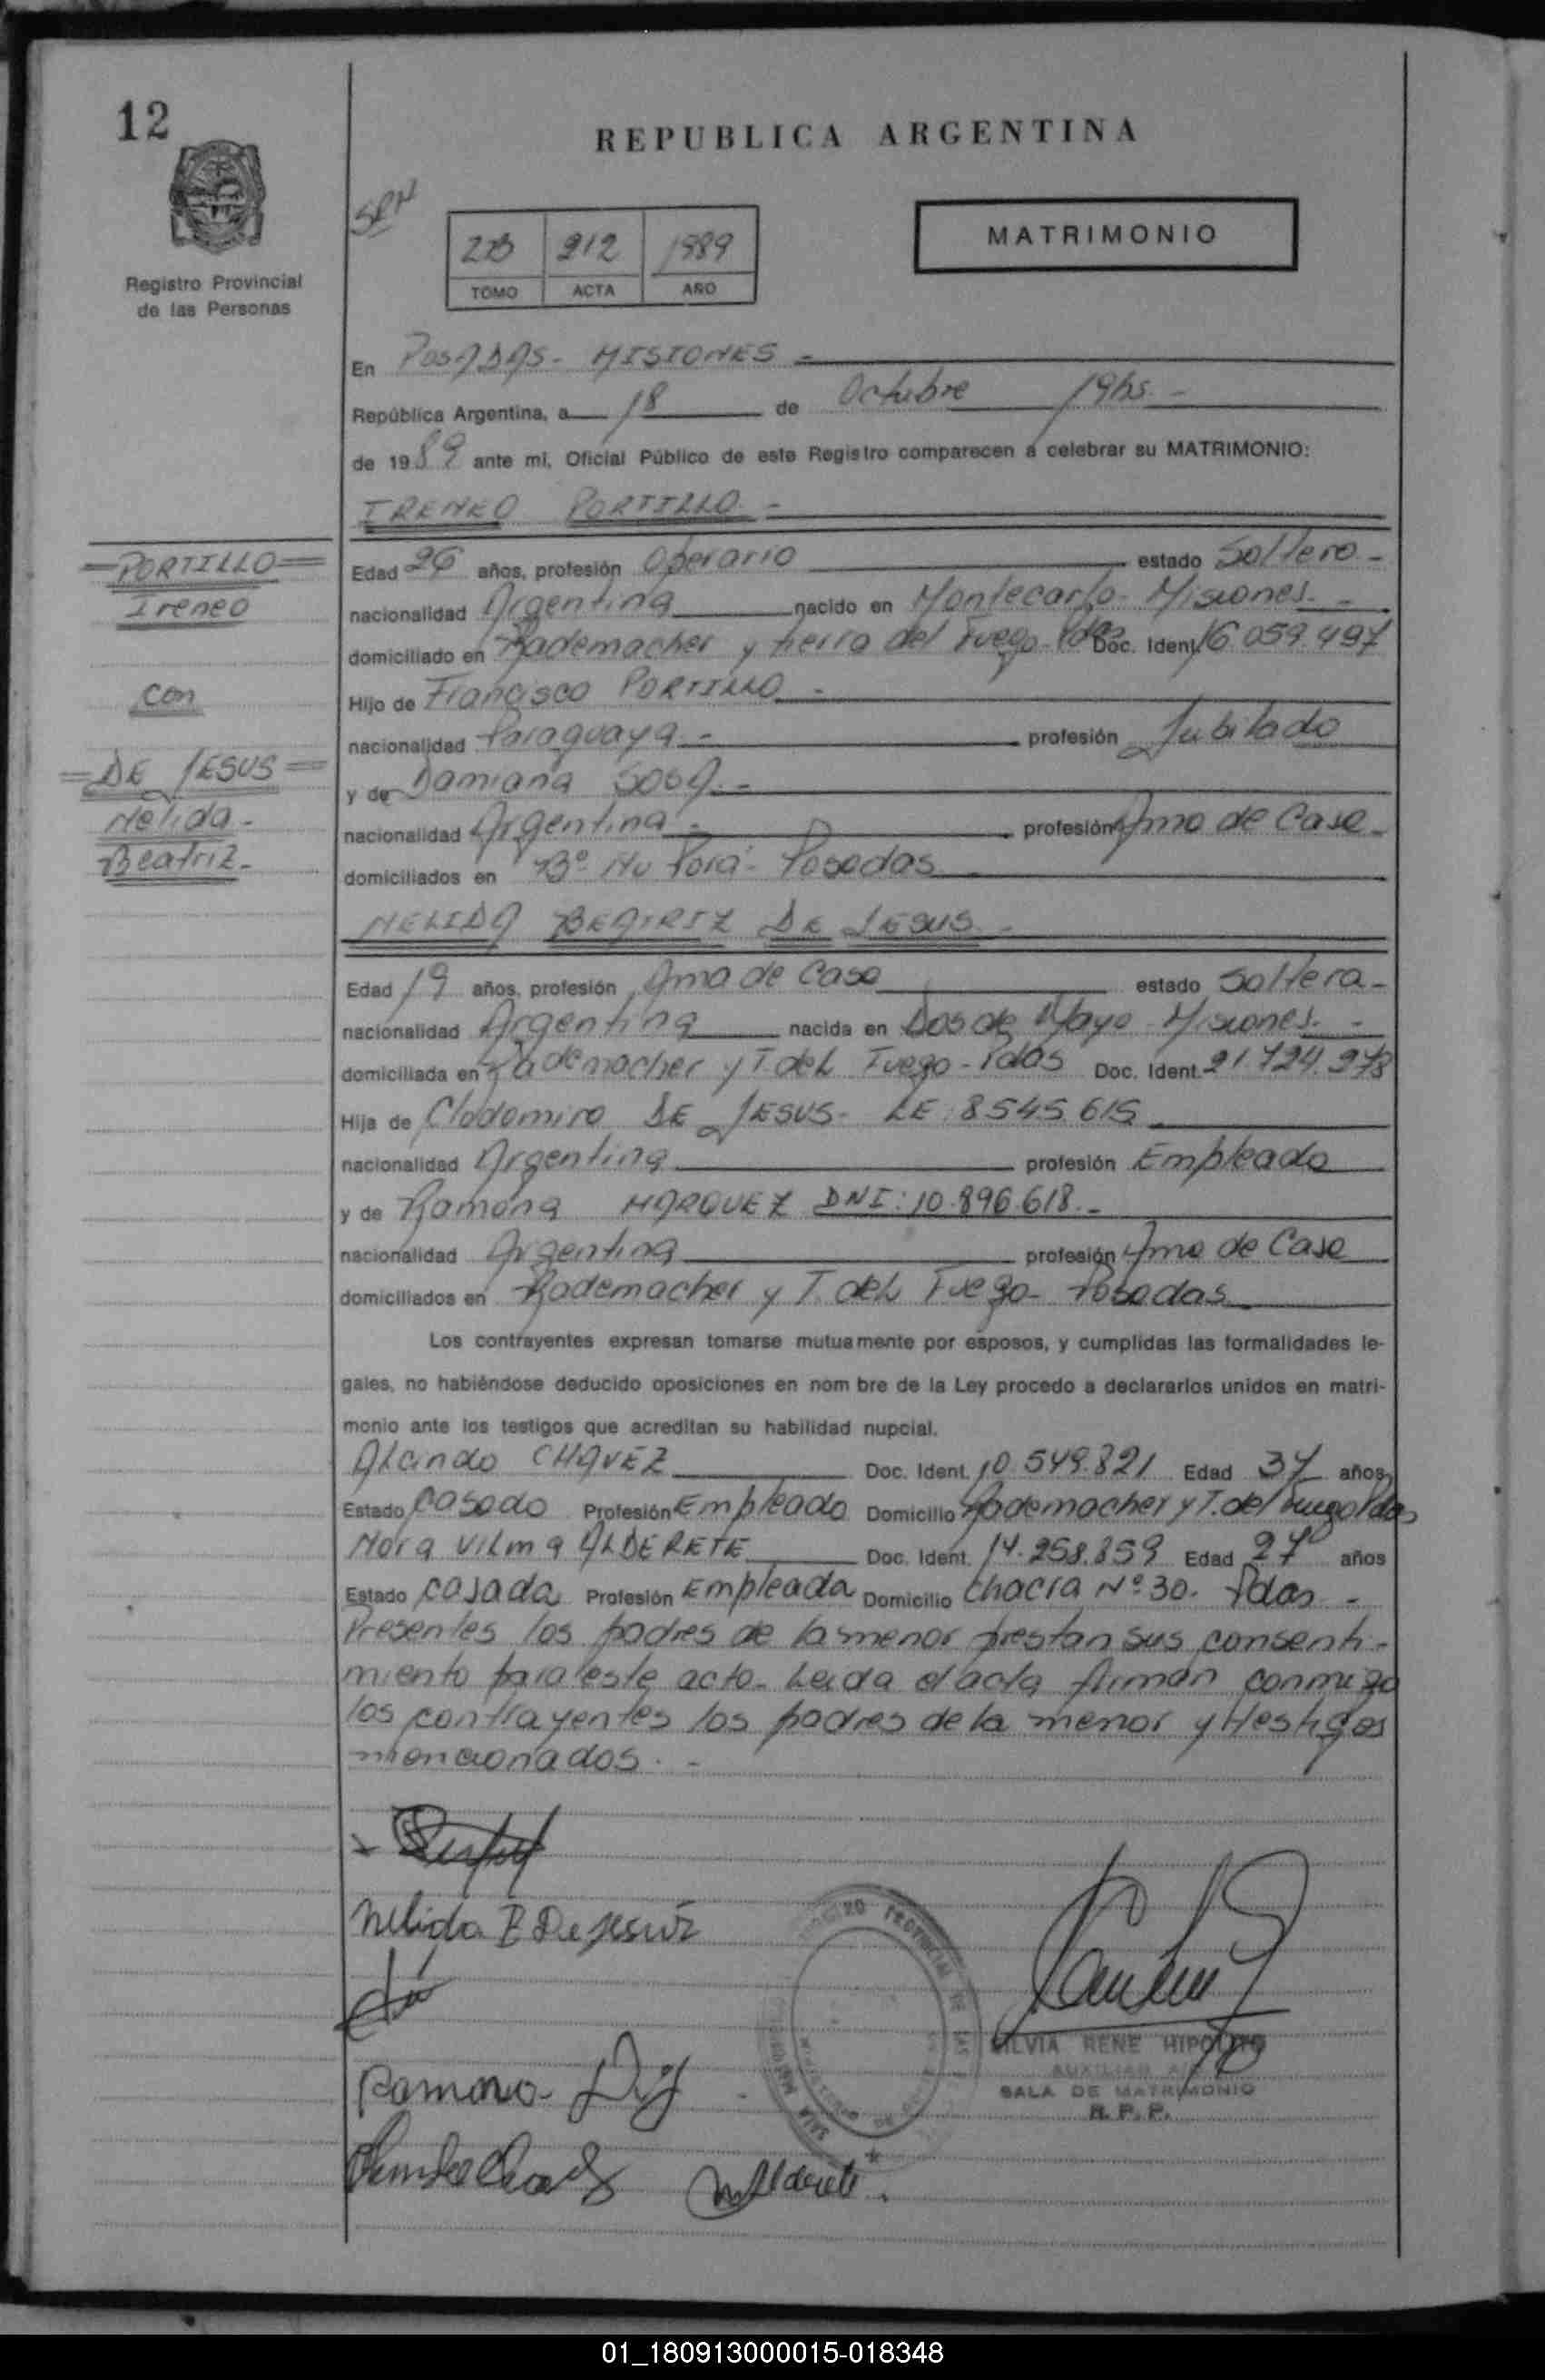 12
REPUBLICA ARGENTINA
Registro Provincial
de las Personas
212 1989
TOMO ACTA AÑO
MATRIMONIO
En POSADAS - MISIONES -
República Argentina, a 18 de Octubre 19hs. -
de 1989 ante mi, Oficial Público de este Registro comparecen a celebrar su MATRIMONIO:
IRENEO PORTILLO -
PORTILLO
Ireneo
con
DE JESUS
Nelida -
Beatriz -
Edad 26 años, profesión Operario estado Soltero -
nacionalidad Argentina nacido en Montecarlo - Misiones. -
domiciliado en Rademacher y tierra del Fuego - Pdas Doc. Ident. 16.059.497
Hijo de Francisco PORTILLO -
nacionalidad Paraguaya. - profesión Jubilado
y de Damiana SOSA. -
nacionalidad Argentina - profesión Ama de Casa -
domiciliados en Bº Ñu Porá - Posadas
NELIDA BEATRIZ DE JESUS -
Edad 19 años, profesión Ama de Casa estado Soltera -
nacionalidad Argentina nacida en Dos de Mayo - Misiones. -
domiciliada en Rademacher y T. del Fuego - Pdas Doc. Ident. 21.724.978
Hija de Clodomiro DE JESUS - LE: 8545.615
nacionalidad Argentina profesión Empleado
y de Ramona MARQUEZ DNI: 10.896.618. -
nacionalidad Argentina profesión Ama de Casa
domiciliados en Rademacher y T. del Fuego - Posadas
Los contrayentes expresan tomarse mutuamente por esposos, y cumplidas las formalidades le-
gales, no habiéndose deducido oposiciones en nom bre de la Ley procedo a declararlos unidos en matri-
monio ante los testigos que acreditan su habilidad nupcial.
CHAVEZ Doc. Ident. 10.549.821 Edad 37 años
Estado Casado Profesión Empleado Domicilio Rademacher y T. del Fuego Pdas
Nora Vilma ALDERETE Doc. Ident. 14.258.859 Edad 27 años
Estado Casada Profesión Empleada Domicilio Chacra Nº 30. Pdas -
Presentes los padres de la menor prestan sus consenti-
miento para este acto - Leida el acta firman conmigo
los contrayentes los padres de la menor y testigos
mencionados. -
Nelida B De Jesús
Ramona
Alderete
SILVIA RENE HIPOLITO
AUXILIAR
SALA DE MATRIMONIO
R. P. P.
01_180913000015-018348